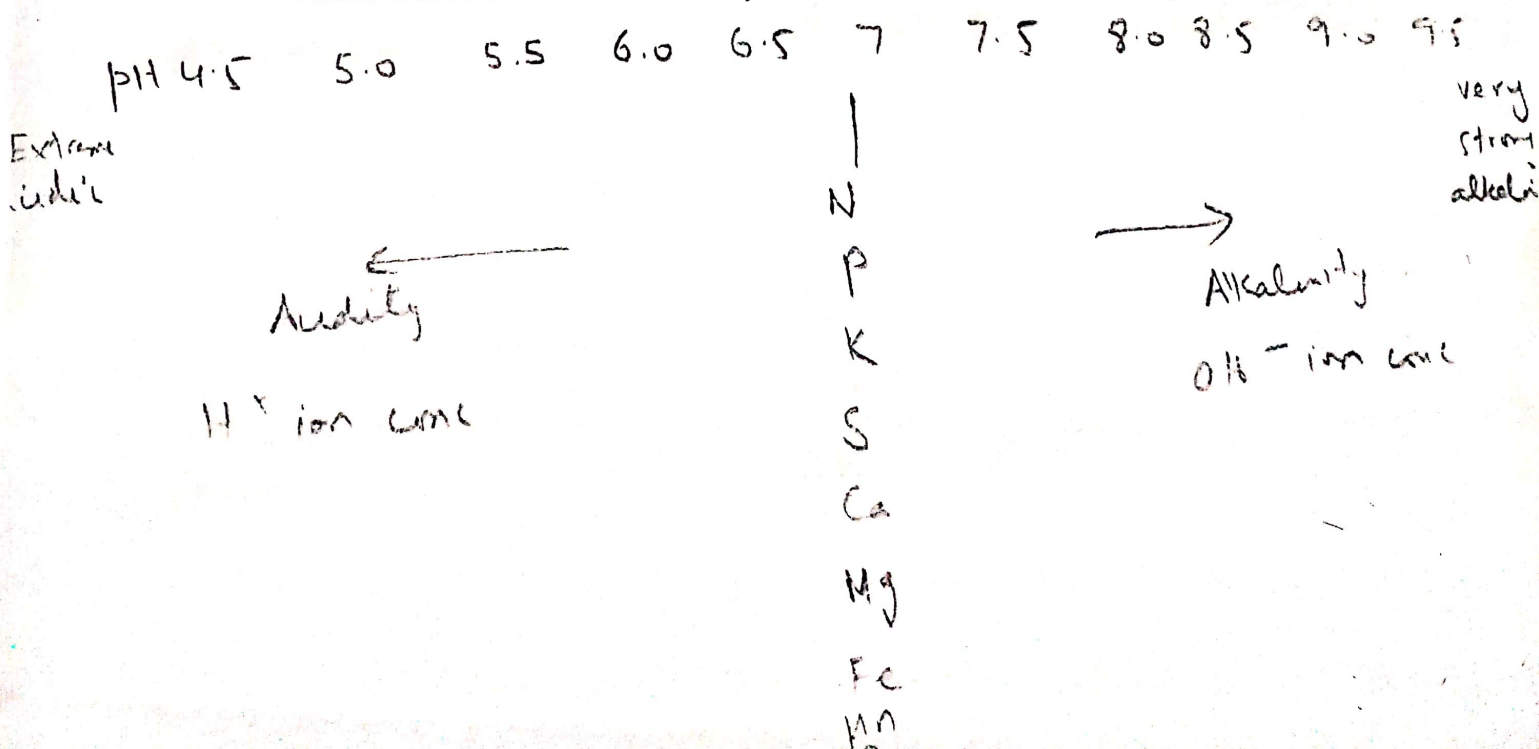 pH 4.5 5.0 5.5 6.0 6.5 7 7.5 8.0 8.5 9.0 9.5
Extreme
acidic
very
strong
alkali
N
P
K
S
Ca
Mg
Fe
Mn
Acidity
H+ ion conc
Alkalinity
OH - ion conc